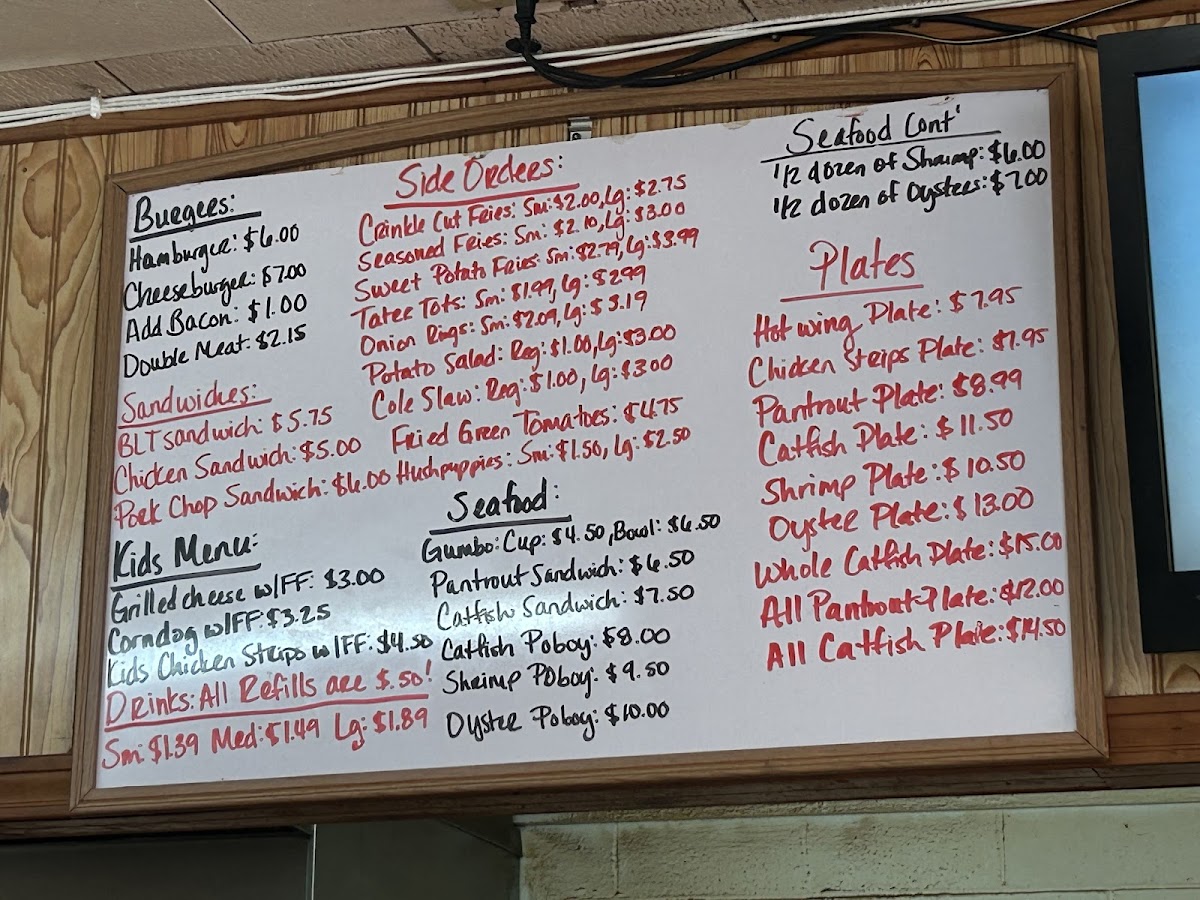 Burgers:
Hamburger: $6.00
Cheeseburger: $7.00
Add Bacon: $1.00
Double Meat: $2.15
Sandwiches:
BLT sandwich: $5.75
Chicken Sandwich: $5.00
Pork Chop Sandwich: $6.00
Kids Menu:
Grilled cheese w/FF: $3.00
Corndog w/FF: $3.25
Kids Chicken Strips w/FF: $4.50
Drinks: All Refills are $.50!
Sm: $1.39 Med: $1.49 Lg: $1.89
Side Orders:
Crinkle Cut Fries: Sm: $2.00, Lg: $2.75
Seasoned Fries: Sm: $2.10, Lg: $3.00
Sweet Potato Fries: Sm: $2.79, Lg: $3.99
Tater Tots: Sm: $1.99, Lg: $2.99
Onion Rings: Sm: $2.09, Lg: $3.19
Potato Salad: Reg: $1.00, Lg: $3.00
Cole Slaw: Reg: $1.00, Lg: $3.00
Fried Green Tomatoes: $4.75
Hushpuppies: Sm: $1.50, Lg: $2.50
Seafood:
Gumbo: Cup: $4.50, Bowl: $6.50
Pantrout Sandwich: $6.50
Catfish Sandwich: $7.50
Catfish Poboy: $8.00
Shrimp Poboy: $9.50
Oyster Poboy: $10.00
Seafood Cont'
1/2 dozen of Shrimp: $6.00
1/2 dozen of Oysters: $7.00
Plates
Hot wing Plate: $7.95
Chicken Strips Plate: $7.95
Pantrout Plate: $8.99
Catfish Plate: $11.50
Shrimp Plate: $10.50
Oyster Plate: $13.00
Whole Catfish Plate: $15.00
All Pantrout Plate: $12.00
All Catfish Plate: $14.50